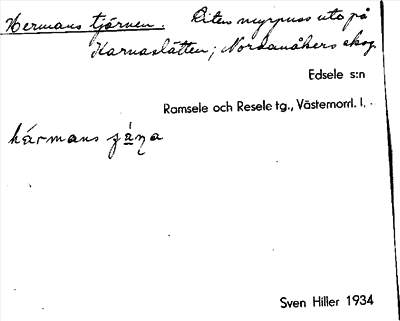 Hermans tjärnen. Liten myrpuss ute på
Karnaslätten; Nordanåkers skog.
Edsele s:n
Ramsele och Resele tg., Västernorrl. l.
hármans
Sven Hiller 1934